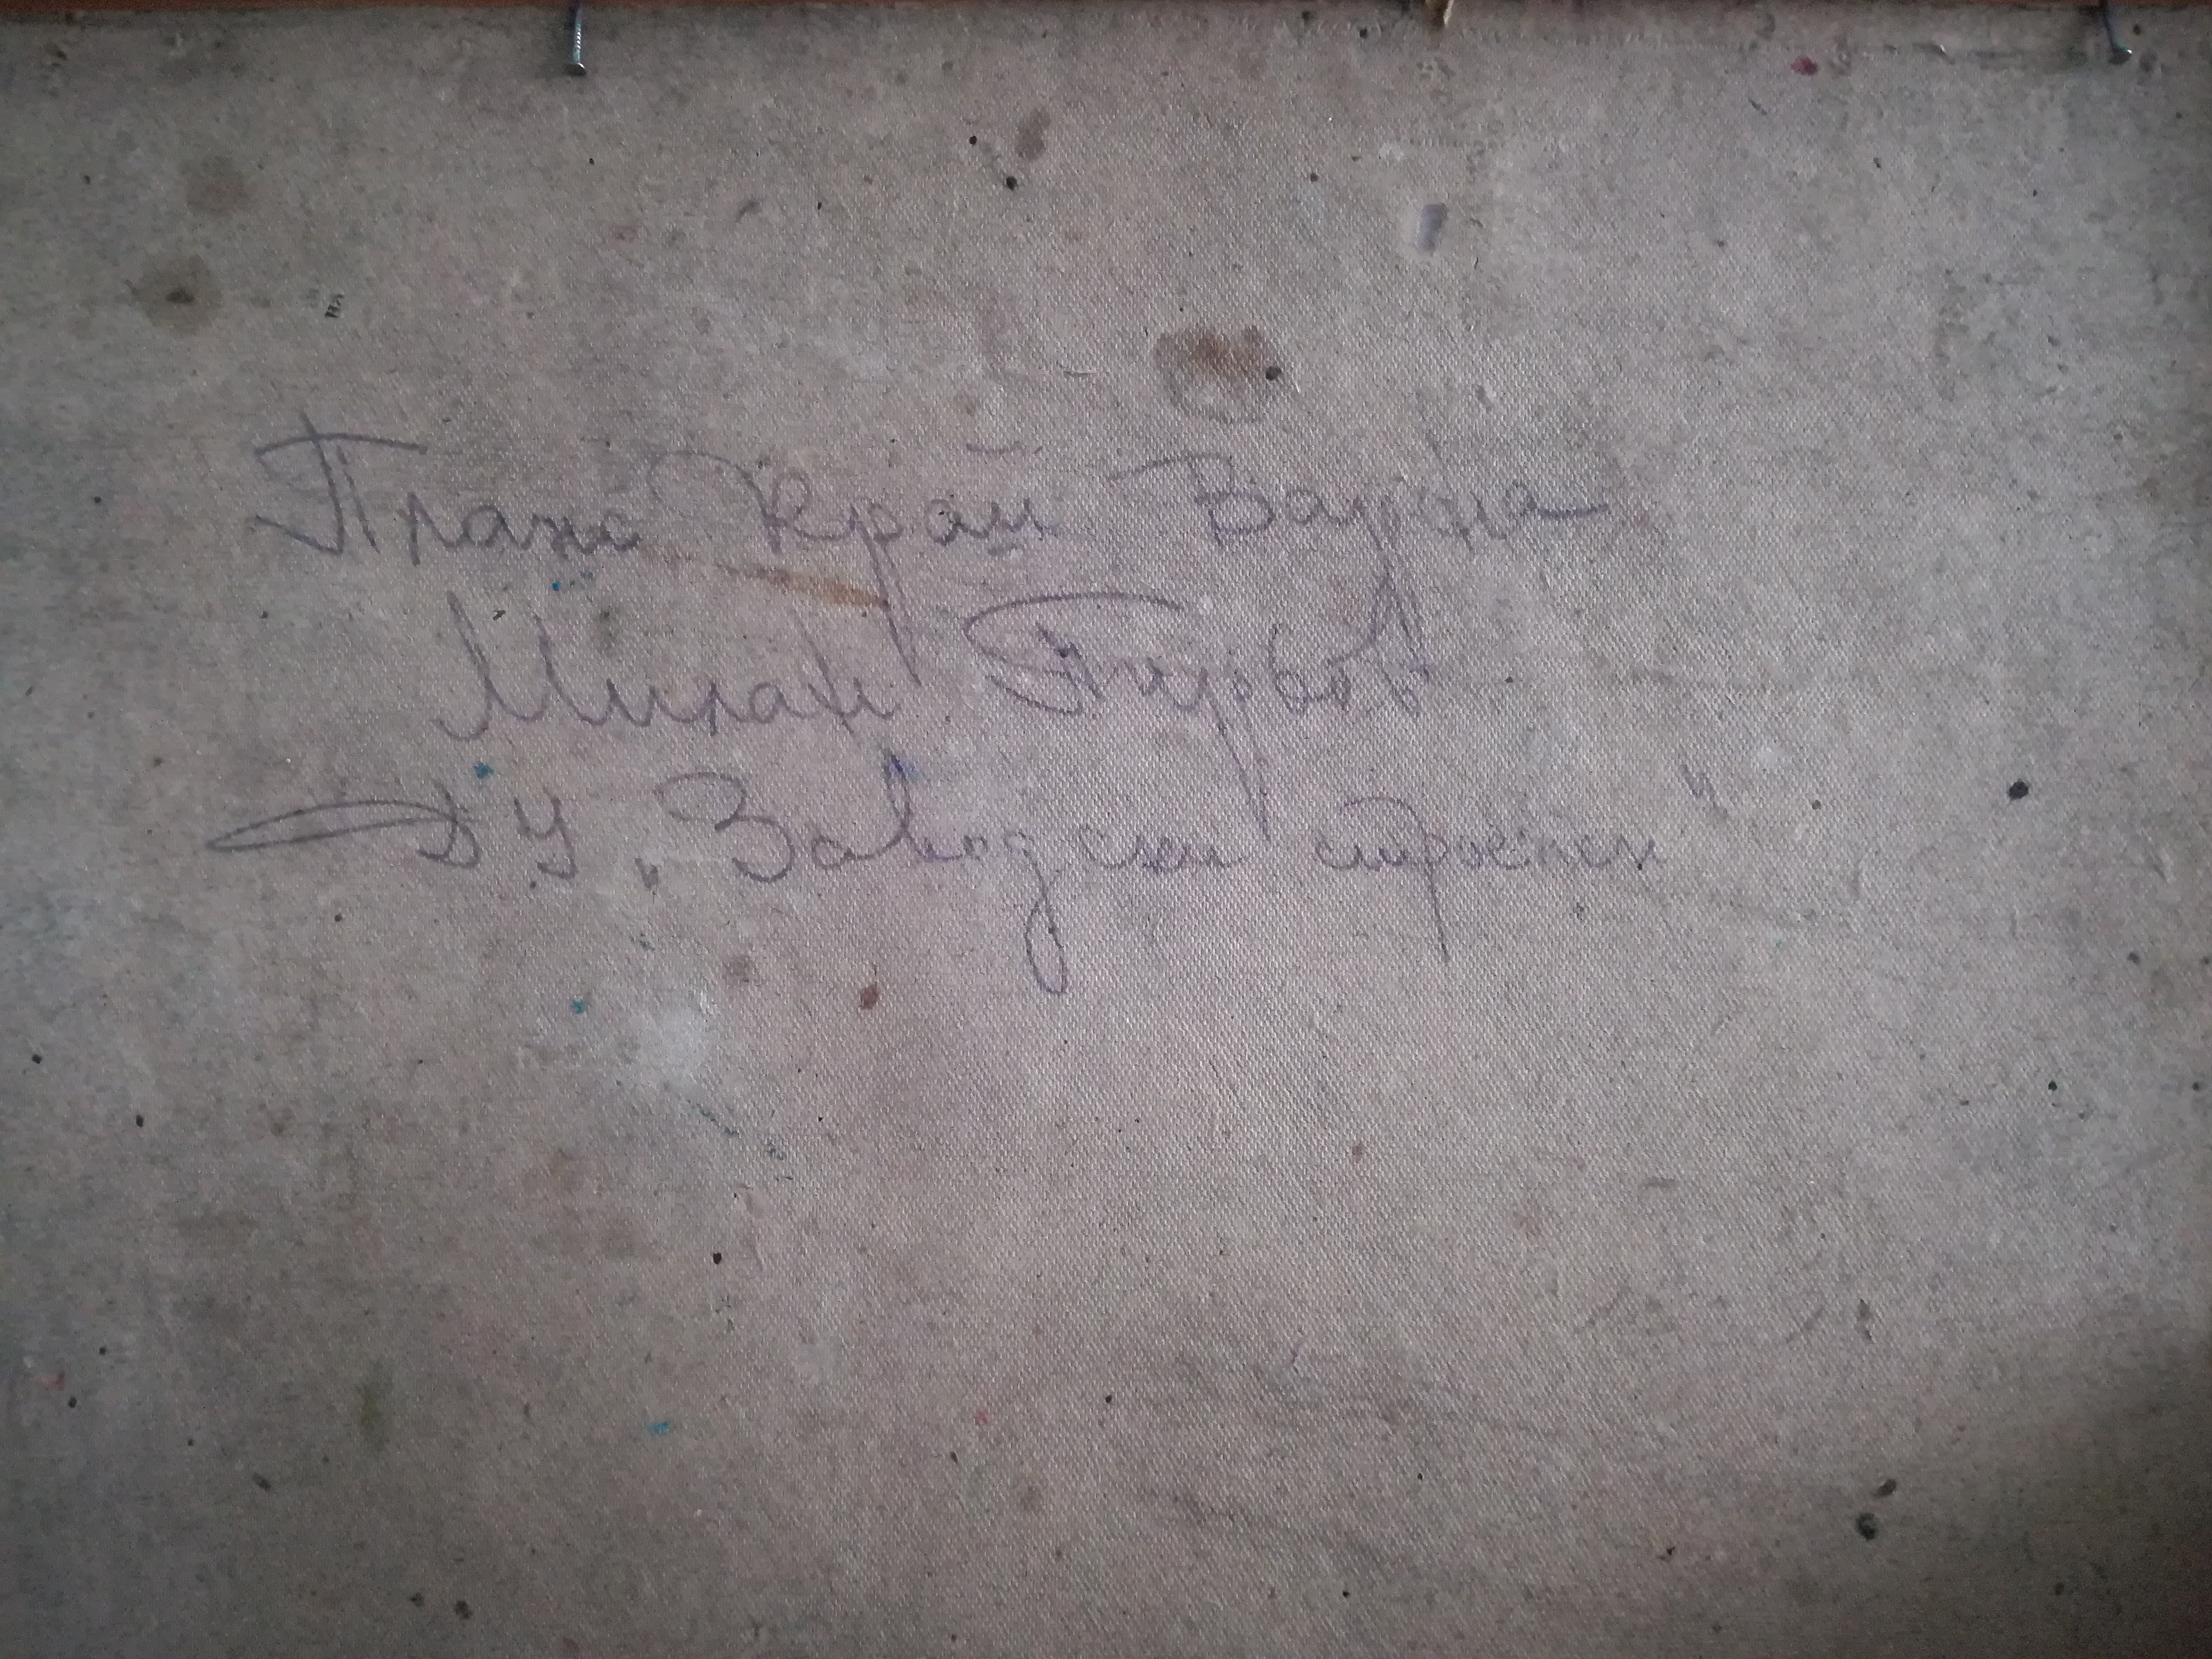 Плаж край Варна
Милан Първов
ДУ „Заводски строежи"